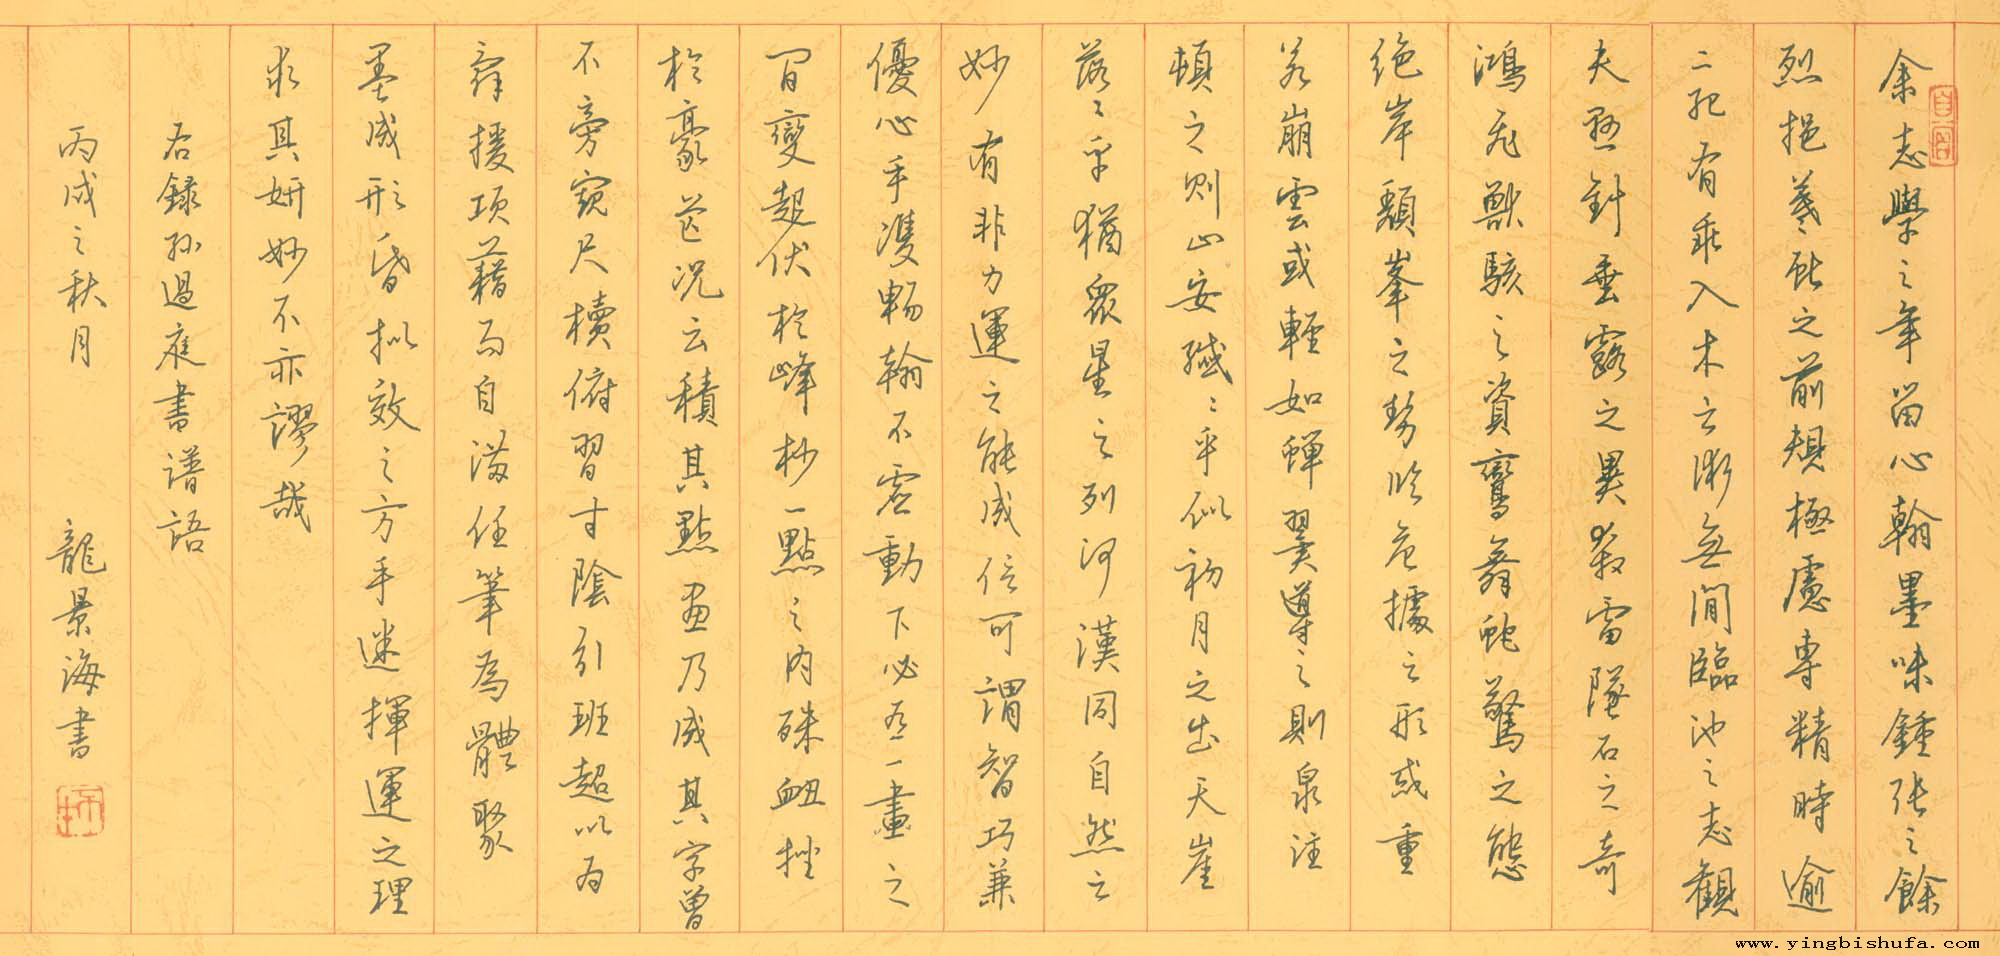 余志學之年留心翰墨味鍾張之餘
烈挹羲獻之前規極慮專精時逾
二紀有乖入木之術無間臨池之志觀
夫懸針垂露之異奔雷墜石之奇
鴻飛獸駭之資鸞舞蛇驚之態
絕岸頹峯之勢臨危據之形或重
若崩雲或輕如蟬翼導之則泉注
頓之則山安纖〻乎似初月之出天崖
落〻乎猶眾星之列河漢同自然之
妙有非力運之能成信可謂智巧兼
優心手雙暢翰不虛動下必有一畫之
間變起伏於峰杪一點之內殊衄挫
於豪芒況云積其點畫乃成其字曾
不旁窺尺櫝俯習寸陰引班超以為
辭援項藉而自滿任筆為體聚
墨成形昏擬效之方手迷揮運之理
求其妍妙不亦謬哉
右錄孫過庭書譜語
丙戌之秋月 龍景海書
www.yingbishufa.com